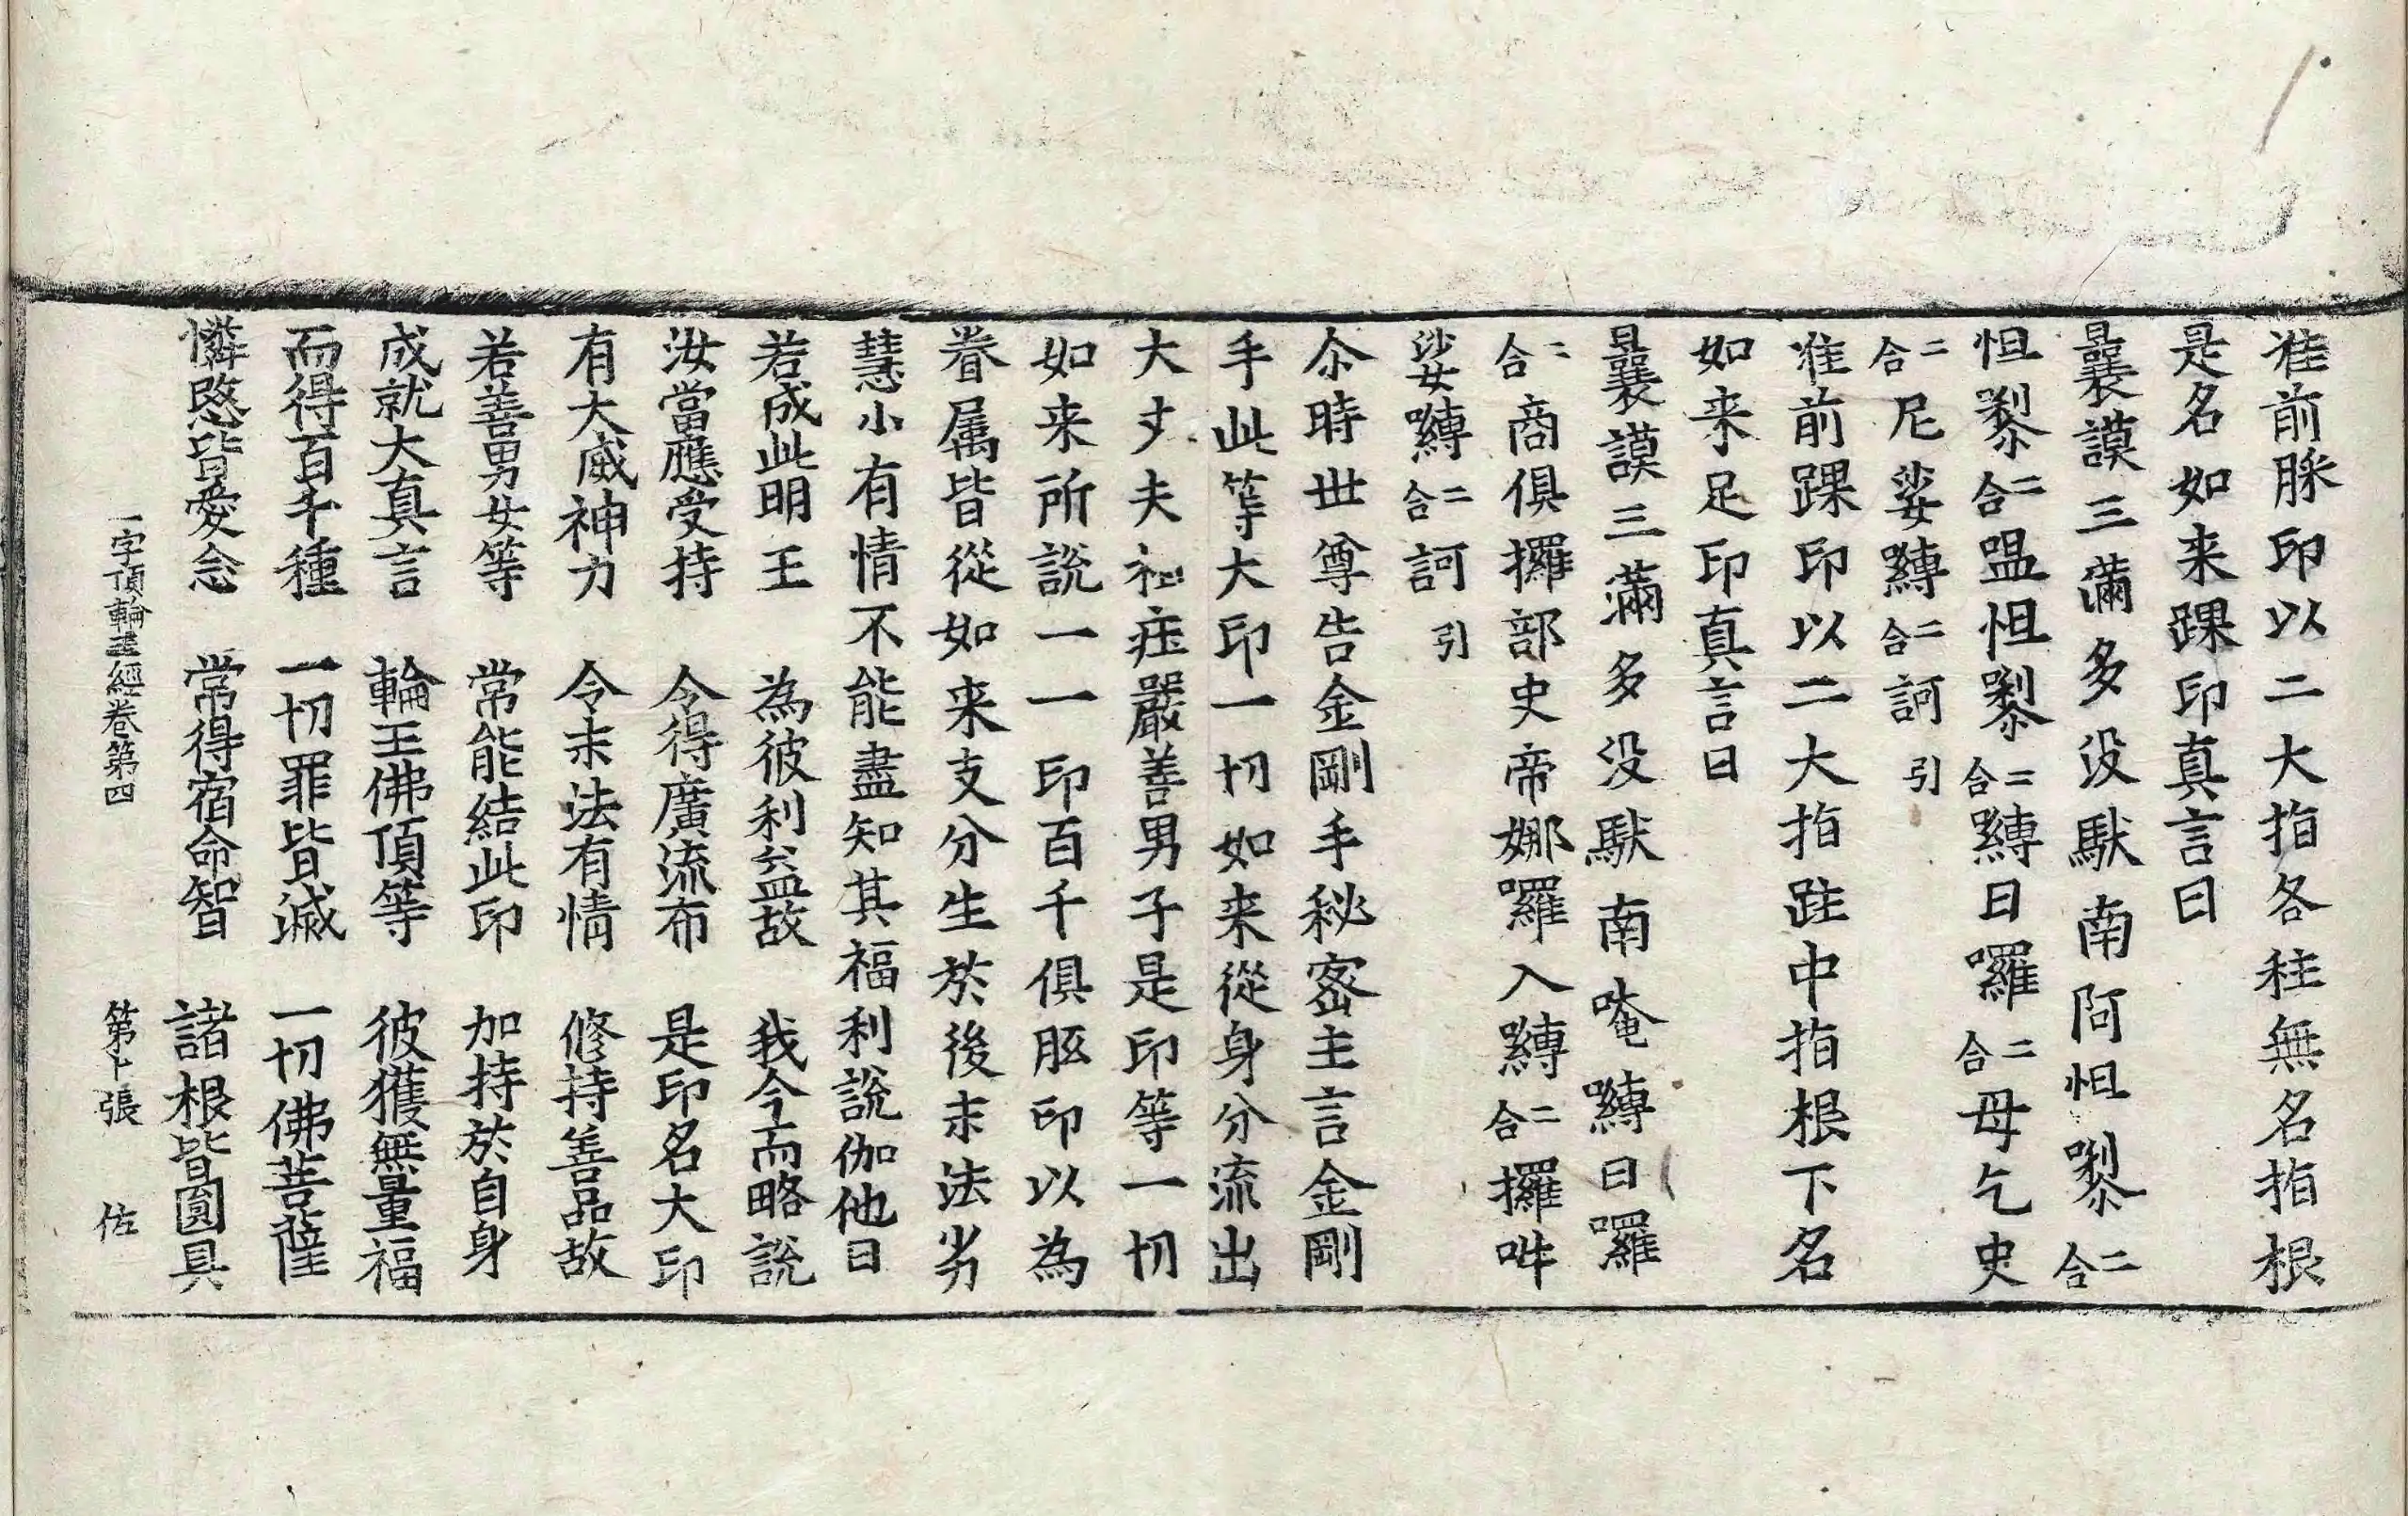 准前䏶印以二大指各拄無名指根
是名如来踝印真言曰
曩謨三滿多没馱南阿怛㗚二合
怛㗚二合嗢怛㗚二合囀日囉二合母乞史
二合尼娑囀二合訶引
准前踝印以二大指跓中指根下名
如来足印真言曰
曩謨三滿多没馱南唵囀日囉
二合商俱攞部史帝娜囉入囀二合攞吽
娑囀二合訶引
尒時世尊告金剛手秘密主言金剛
手此等大印一切如来從身分流出
大丈夫相莊嚴善男子是印等一切
如来所說一一印百千俱胝印以為
眷属皆從如来支分生於後末法劣
慧小有情不能盡知其福利說伽他曰
若成此明王　為彼利益故　我今而略說
汝當應受持　令得廣流布　是印名大印
有大威神力　令末法有情　修持善品故
若善男女等　常能結此印　加持於自身
成就大真言　輪王佛頂等　彼獲無量福
而得百千種　一切罪皆滅　一切佛菩薩
憐愍皆愛念　常得宿命智　諸根皆圓具
一字頂輪王經卷第四　第卜張　佐